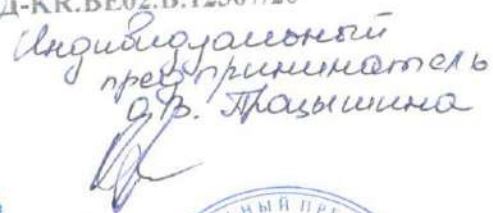 Д-KR.BE02.B.12367/20
Индивидуальный
предприниматель
О.В. Працышина
ЬНЫЙ ПРЕ